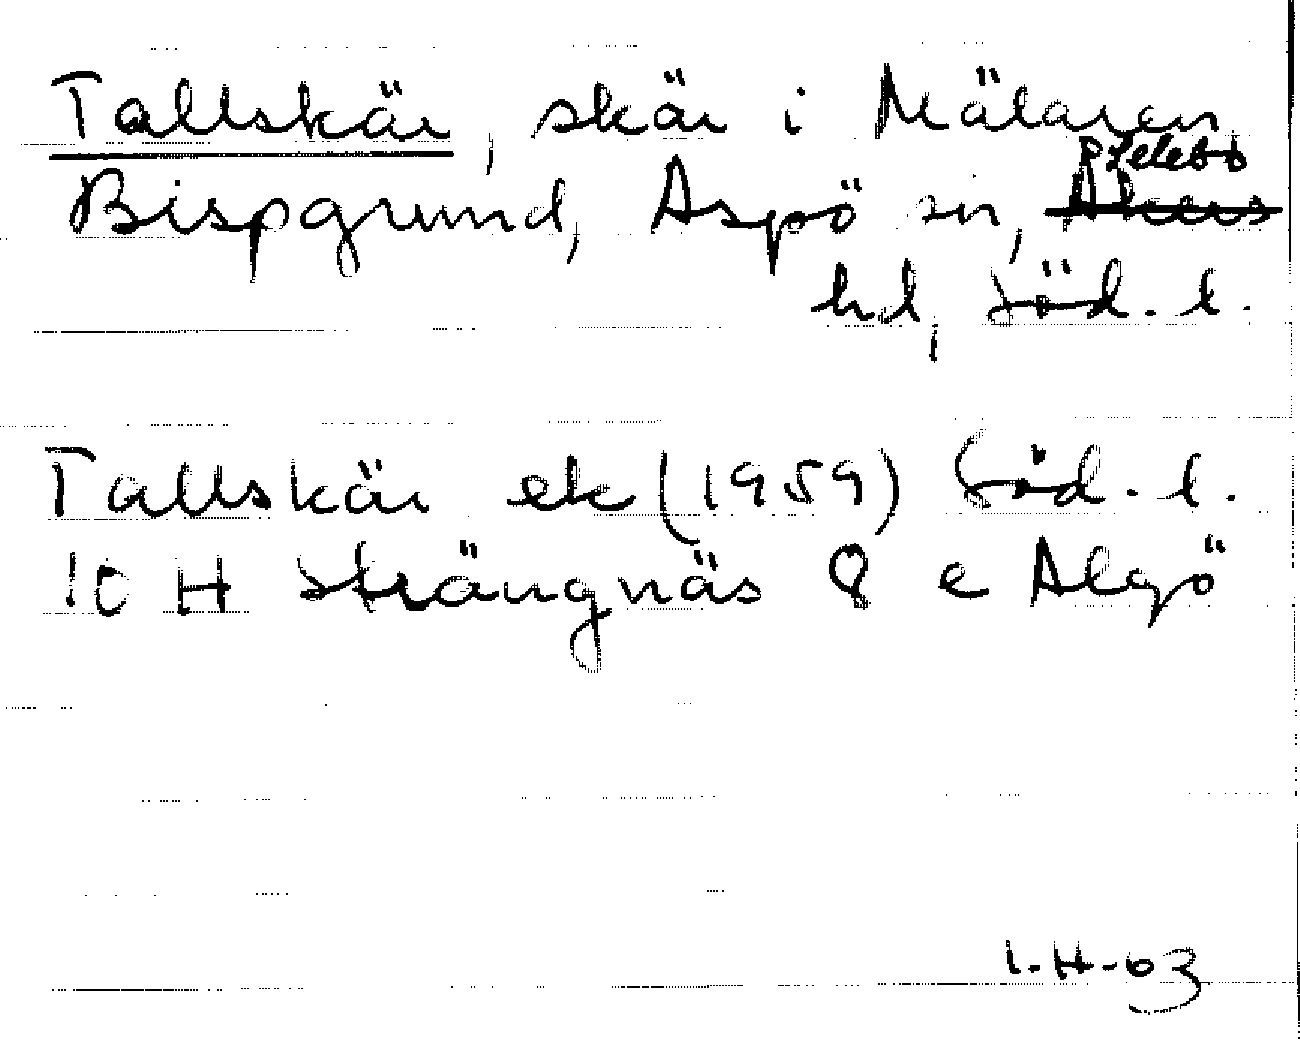 Tallskär, skär i Mälaren
Selebo
Bispgrund, Aspö sn, Åkers
hd, Söd. l.
Tallskär ek (1959) Söd. l.
10 H Strängnäs 8 e Algö
I.H-63